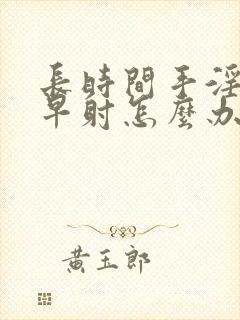 長時間手淫
早射怎麼办
黃玉郎